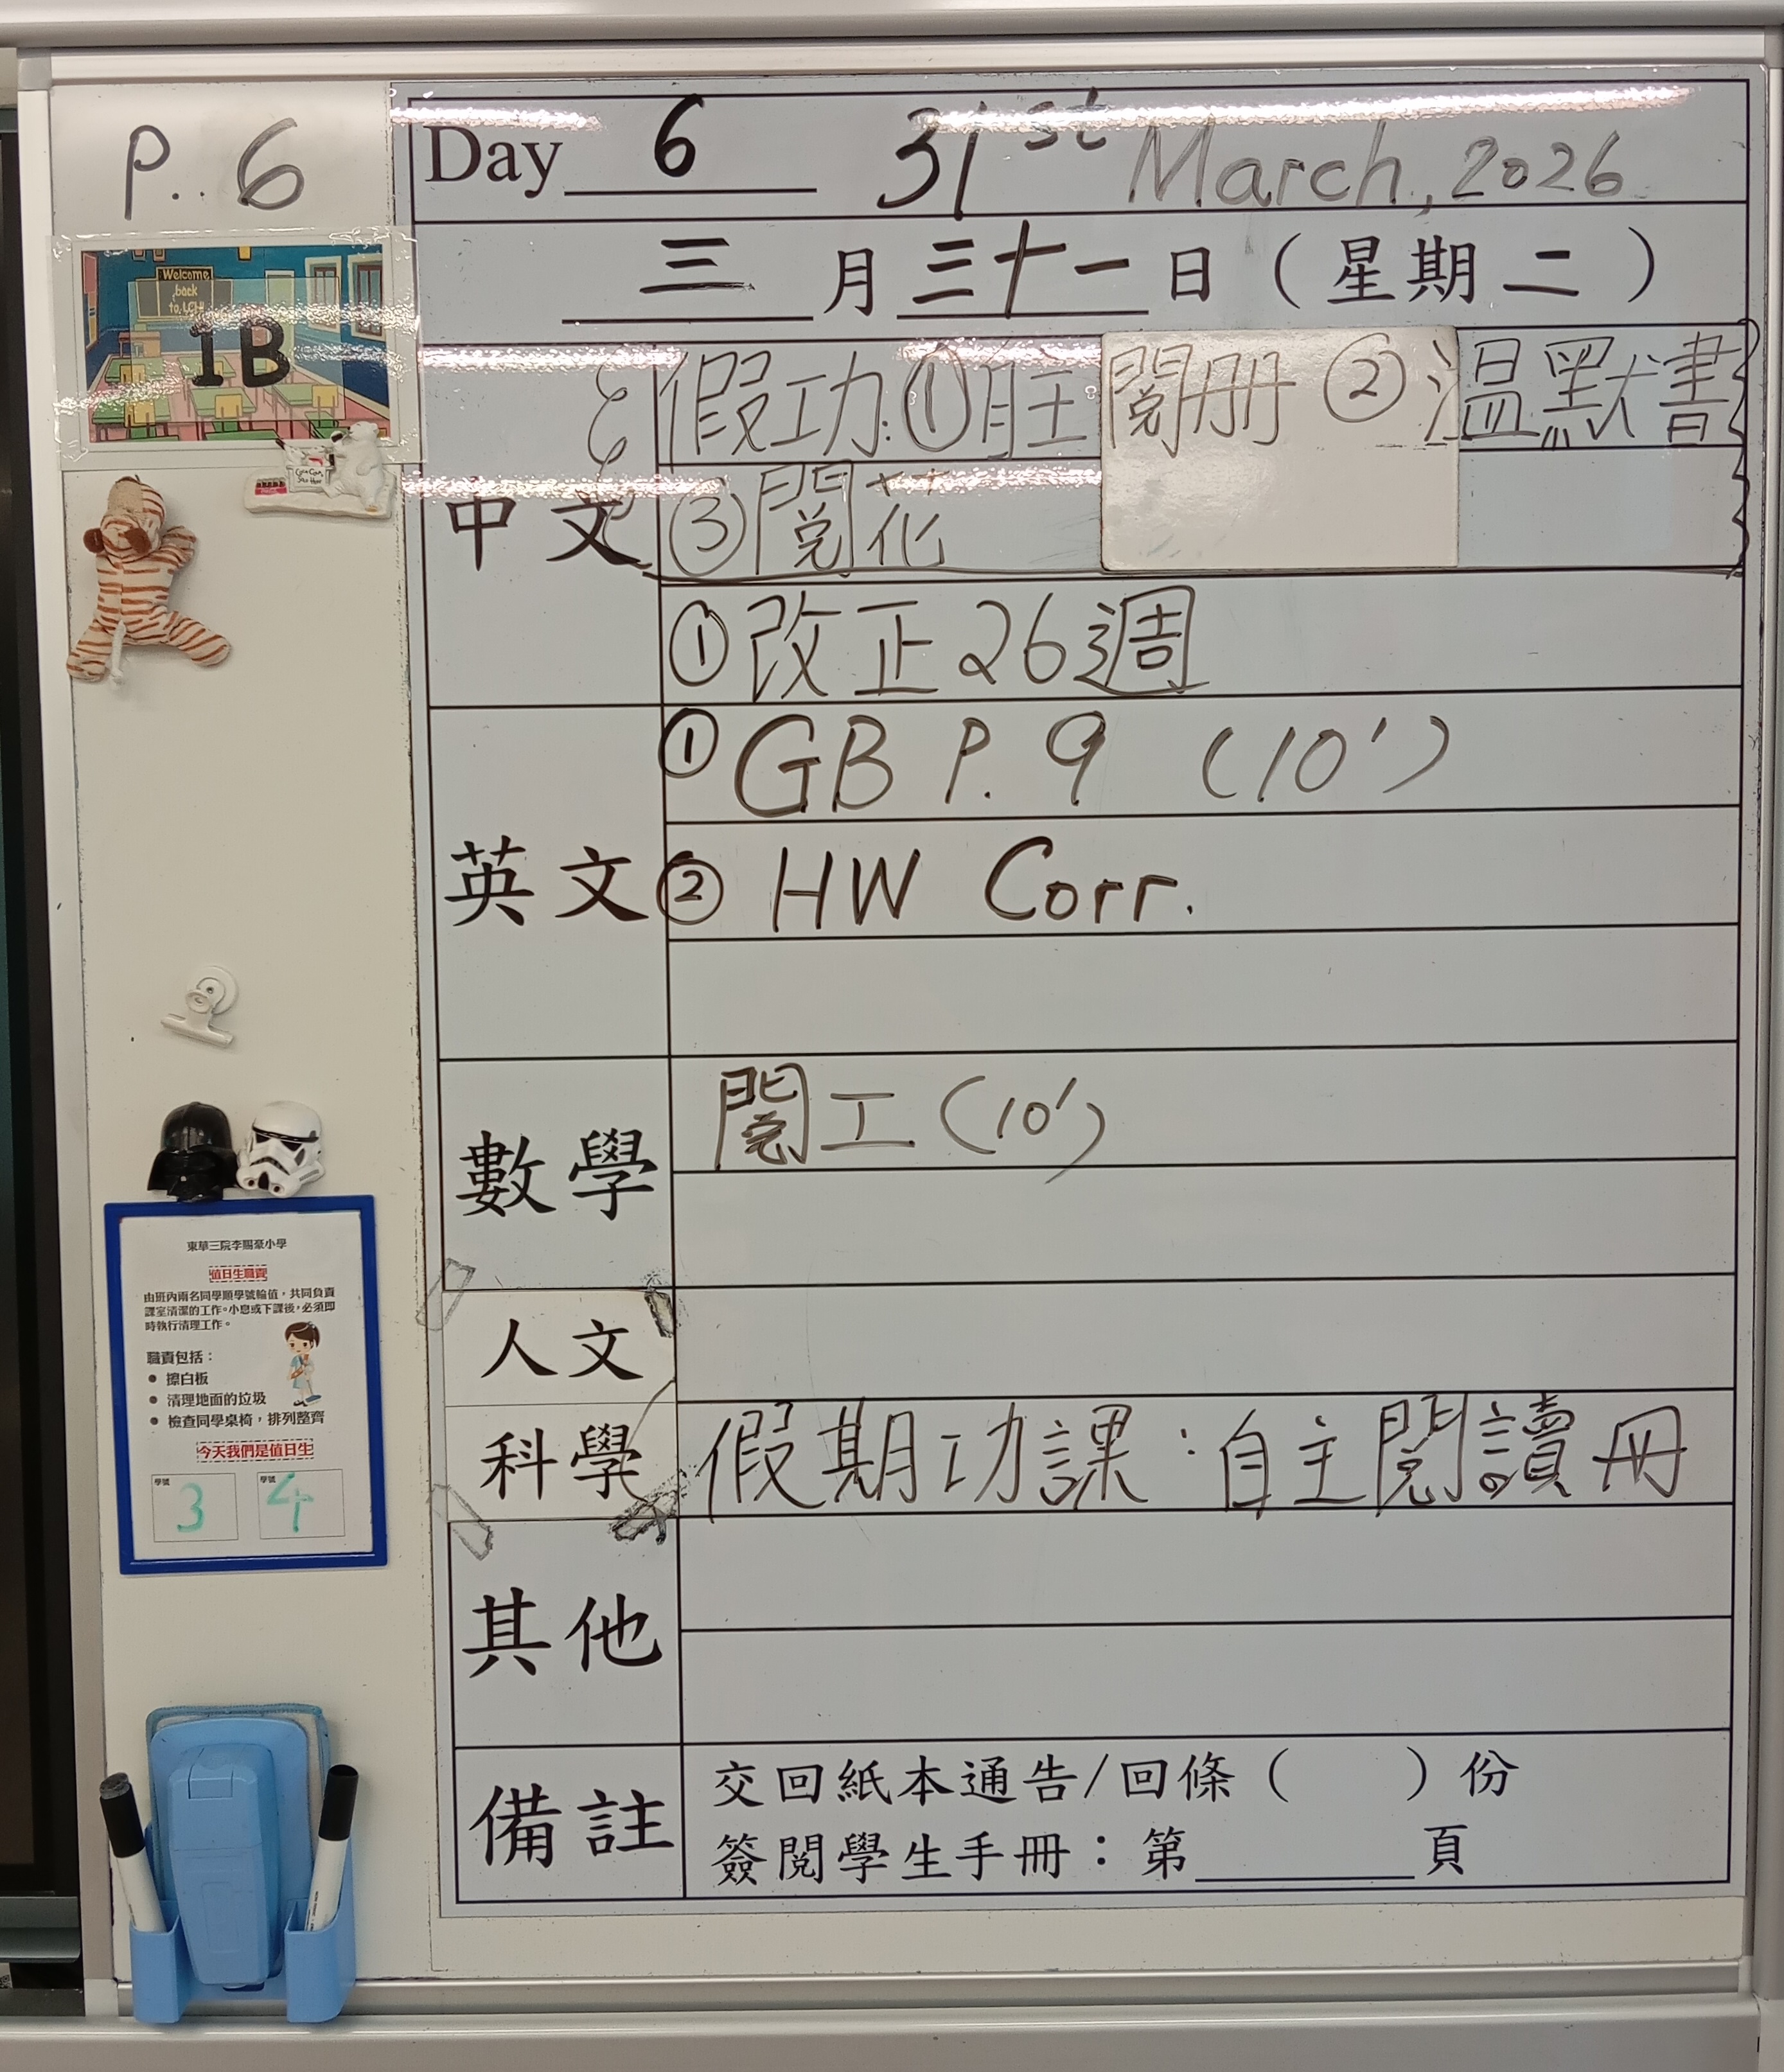 P. 6
Day 6 31st March, 2026
三月三十一日（星期二）
Welcome
back
1B
中文
假功:①旺閱册②溫默書
③閱花
①改正26週
英文
①GB P. 9 (10')
②HW Corr.
數學
閱工(10')
人文
科學
假期功課:自主閱讀冊
其他
備註
交回紙本通告/回條（　　）份
簽閱學生手冊：第______頁
東華三院李賜豪小學
值日生職責
由班內兩名同學順學號輪值，共同負責
課室清潔的工作。小息或下課後，必須即
時執行清理工作。
職責包括：
● 擦白板
● 清理地面的垃圾
● 檢查同學桌椅，排列整齊
今天我們是值日生
學號 3
學號 4